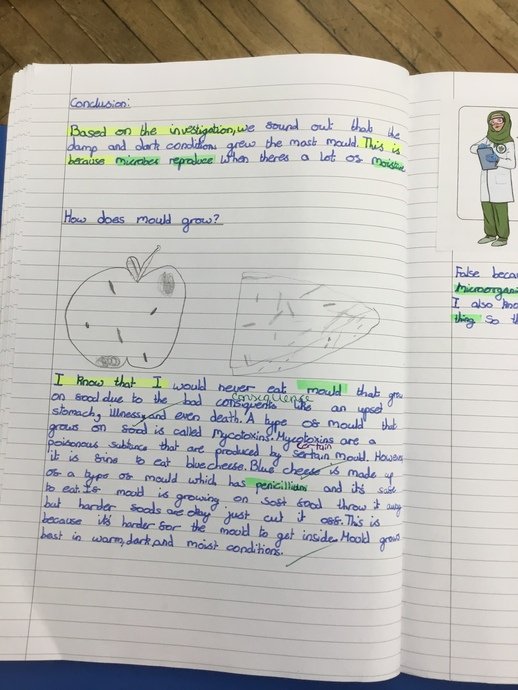 Conclusion:
Based on the investigation, we found out that the
damp and dark conditions grew the most mould. This is
because microbes reproduce when theres a lot of moisture
How does mould grow?
I know that I would never eat mould that grow
on food due to the bad consiquents like an upset
consequence
stomach, illness, and even death. A type of mould that
grows on food is called Mycotoxins. Mycotoxins are a
poisonous subtance that are produced by sertain mould. However
certain
it is fine to eat blue cheese. Blue cheese is made up
of a type of mould which has penicillium and it's safe
to eat. If mould is growing on soft food throw it away
but harder foods are okay just cut it off. This is
because it's harder for the mould to get inside. Mould grows
best in warm, dark, and moist conditions.
False becau
microorgani
I also kno
thing so th